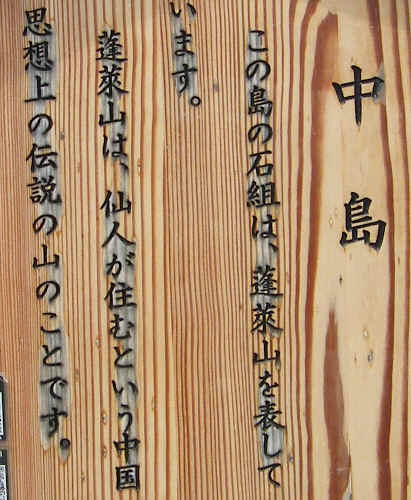 中島
この島の石組は、蓬萊山を表して
います。
蓬萊山は、仙人が住むという中国
思想上の伝説の山のことです。